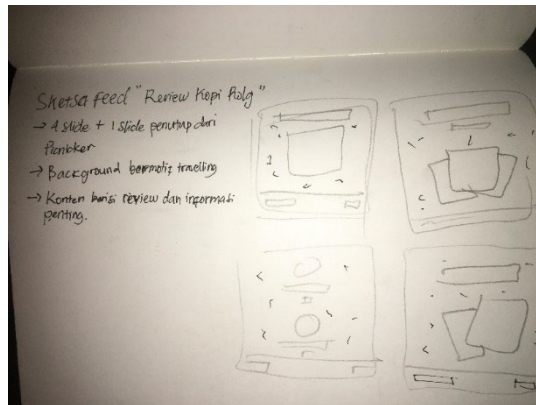 Sketsa Feed "Review Kopi Polg"
→ 4 slide + 1 slide penutup dari
Picnicker
→ Background bermotif travelling
→ Konten berisi review dan informasi
penting.